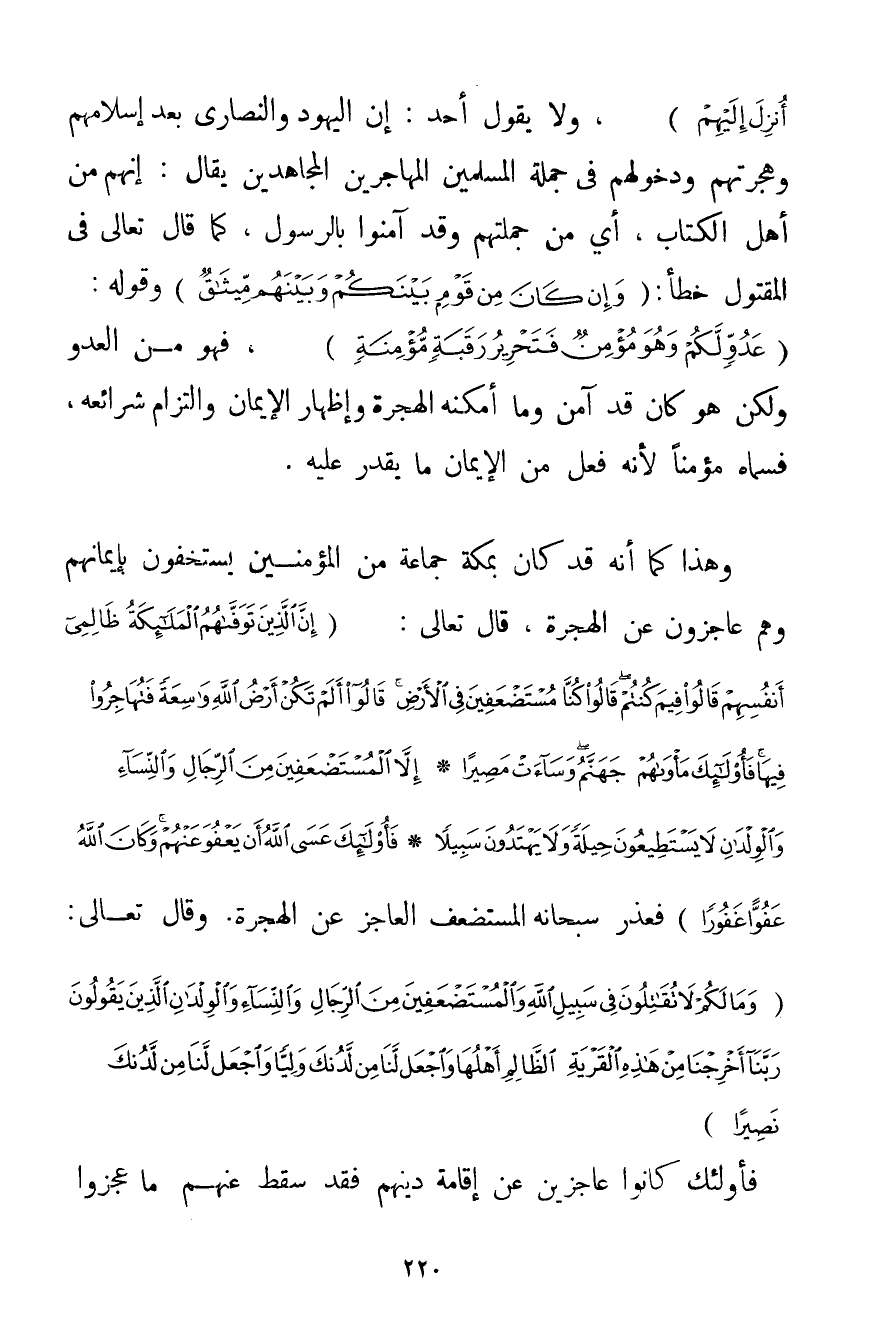 أُنزِلَ إِلَيْهِمْ ) ، ولا يقول أحد : إن اليهود والنصارى بعد إسلامهم
وهجرتهم ودخولهم فى جملة المسلمين المهاجرين المجاهدين يقال : إنهم من
أهل الكتاب ، أي من جملتهم وقد آمنوا بالرسول ، كما قال تعالى فى
المقتول خطأ :( وَإِن كَانَ مِن قَوْمٍ بَيْنَكُمْ وَبَيْنَهُم مِّيثَٰقٌ ) وقوله :
( عَدُوٍّ لَّكُمْ وَهُوَ مُؤْمِنٌ فَتَحْرِيرُ رَقَبَةٍ مُّؤْمِنَةٍ ) ، فهو مـن العدو
ولكن هو كان قد آمن وما أمكنه الهجرة وإظهار الإيمان والتزام شرائعه ،
فسماه مؤمناً لأنه فعل من الإيمان ما يقدر عليه .
وهذا كما أنه قد كان بمكة جماعة من المؤمنـين يستخفون بإيمانهم
وهم عاجزون عن الهجرة ، قال تعالى : ( إِنَّ ٱلَّذِينَ تَوَفَّىٰهُمُ ٱلْمَلَٰٓئِكَةُ ظَالِمِىٓ
أَنفُسِهِمْ قَالُوا۟ فِيمَ كُنتُمْ ۖ قَالُوا۟ كُنَّا مُسْتَضْعَفِينَ فِى ٱلْأَرْضِ ۚ قَالُوٓا۟ أَلَمْ تَكُنْ أَرْضُ ٱللَّهِ وَٰسِعَةً فَتُهَاجِرُوا۟
فِيهَا ۚ فَأُو۟لَٰٓئِكَ مَأْوَىٰهُمْ جَهَنَّمُ ۖ وَسَآءَتْ مَصِيرًا * إِلَّا ٱلْمُسْتَضْعَفِينَ مِنَ ٱلرِّجَالِ وَٱلنِّسَآءِ
وَٱلْوِلْدَٰنِ لَا يَسْتَطِيعُونَ حِيلَةً وَلَا يَهْتَدُونَ سَبِيلًا * فَأُو۟لَٰٓئِكَ عَسَى ٱللَّهُ أَن يَعْفُوَ عَنْهُمْ ۚ وَكَانَ ٱللَّهُ
عَفُوًّا غَفُورًا ) فعذر سبحانه المستضعف العاجز عن الهجرة. وقال تعـالى:
( وَمَا لَكُمْ لَا تُقَٰتِلُونَ فِى سَبِيلِ ٱللَّهِ وَٱلْمُسْتَضْعَفِينَ مِنَ ٱلرِّجَالِ وَٱلنِّسَآءِ وَٱلْوِلْدَٰنِ ٱلَّذِينَ يَقُولُونَ
رَبَّنَآ أَخْرِجْنَا مِنْ هَٰذِهِ ٱلْقَرْيَةِ ٱلظَّالِمِ أَهْلُهَا وَٱجْعَل لَّنَا مِن لَّدُنكَ وَلِيًّا وَٱجْعَل لَّنَا مِن لَّدُنكَ
نَصِيرًا )
فأولئك كانوا عاجزين عن إقامة دينهم فقد سقط عنهـم ما عجزوا
٢٢٠